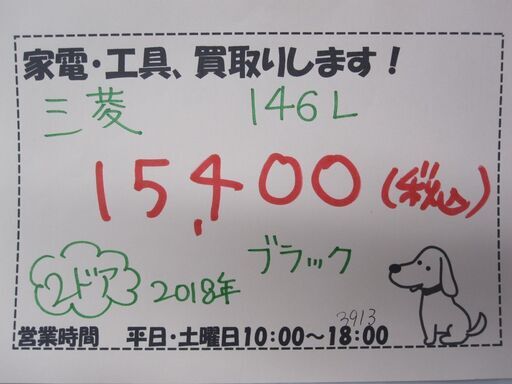 家電・工具、買取りします！
三菱 146L
15,400(税込)
2ドア 2018年 ブラック
3913
営業時間 平日・土曜日10:00～18:00